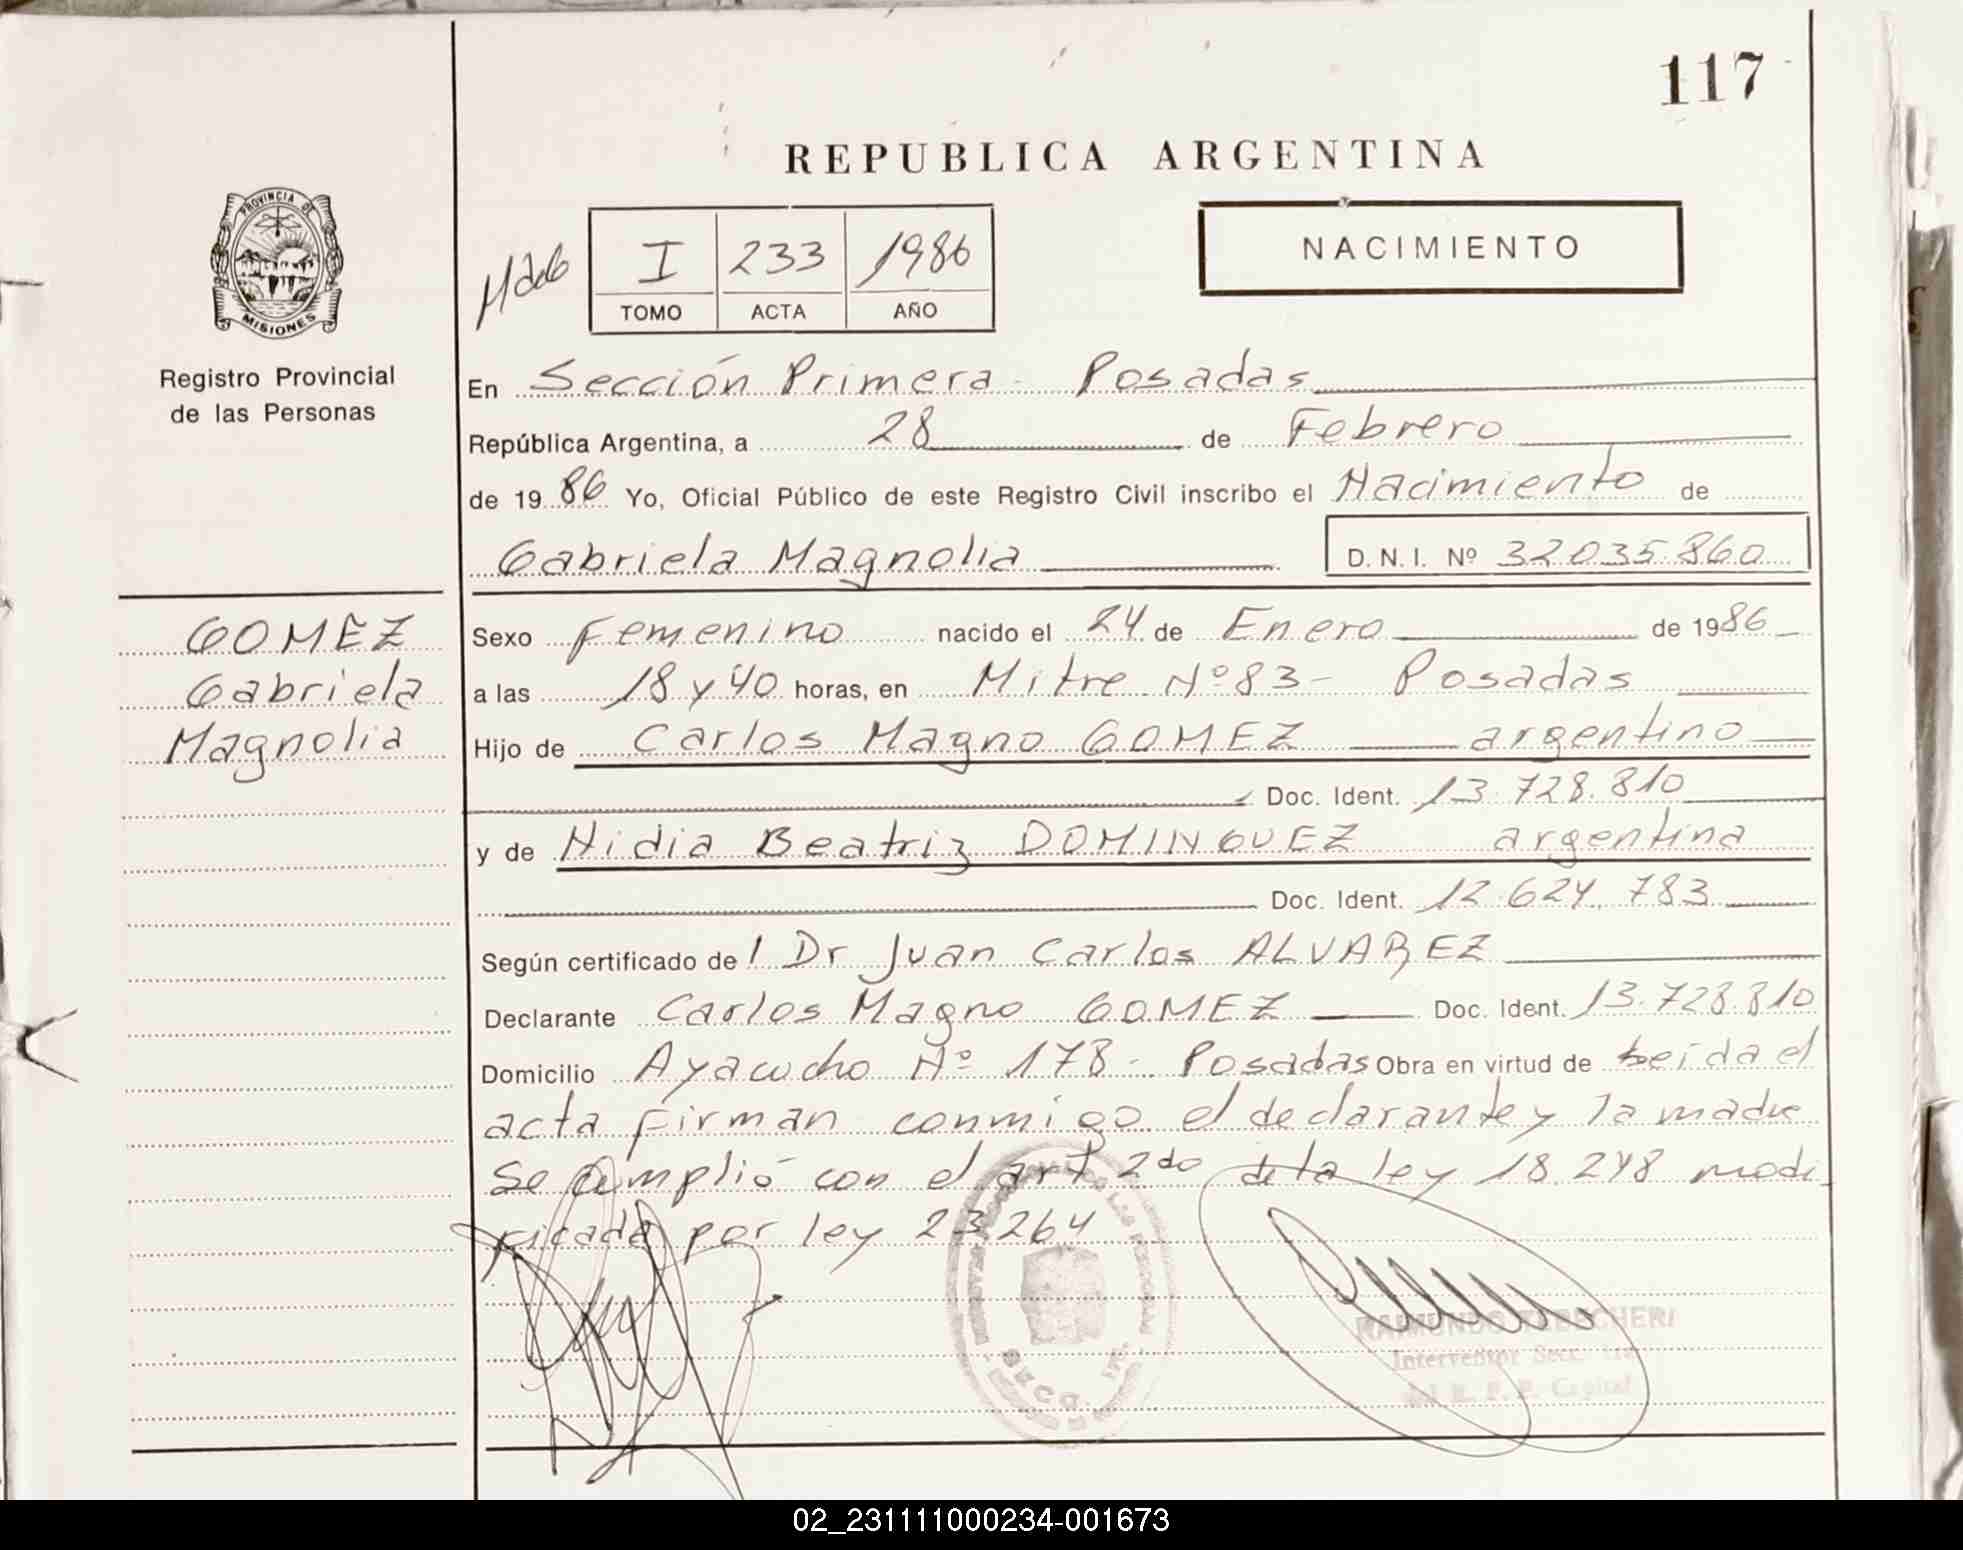 117
REPUBLICA ARGENTINA
PROVINCIA DE
MISIONES
Registro Provincial
de las Personas
I 233 1986
TOMO ACTA AÑO
NACIMIENTO
En Sección Primera - Posadas
República Argentina, a 28 de Febrero
de 1986 Yo, Oficial Público de este Registro Civil inscribo el Nacimiento de
Gabriela Magnolia D.N.I. Nº 32.035.860
GOMEZ
Gabriela
Magnolia
Sexo Femenino nacido el 24 de Enero de 1986
a las 18 y 40 horas, en Mitre Nº 83 - Posadas
Hijo de Carlos Magno GOMEZ argentino
Doc. Ident. 13.728.810
y de Nidia Beatriz DOMINGUEZ argentina
Doc. Ident. 12.624.783
Según certificado del Dr Juan Carlos ALVAREZ
Declarante Carlos Magno GOMEZ Doc. Ident. 13.728.810
Domicilio Ayacucho Nº 178 - Posadas Obra en virtud de Leída el
acta firman conmigo el declarante y la madre
Se cumplió con el art 2do de la ley 18.248 modi
ficada por ley 23264
SECC. 1ra.
RAIMUNDO
Interventor Secc. 1ra
R. P. P. Capital
02_231111000234-001673